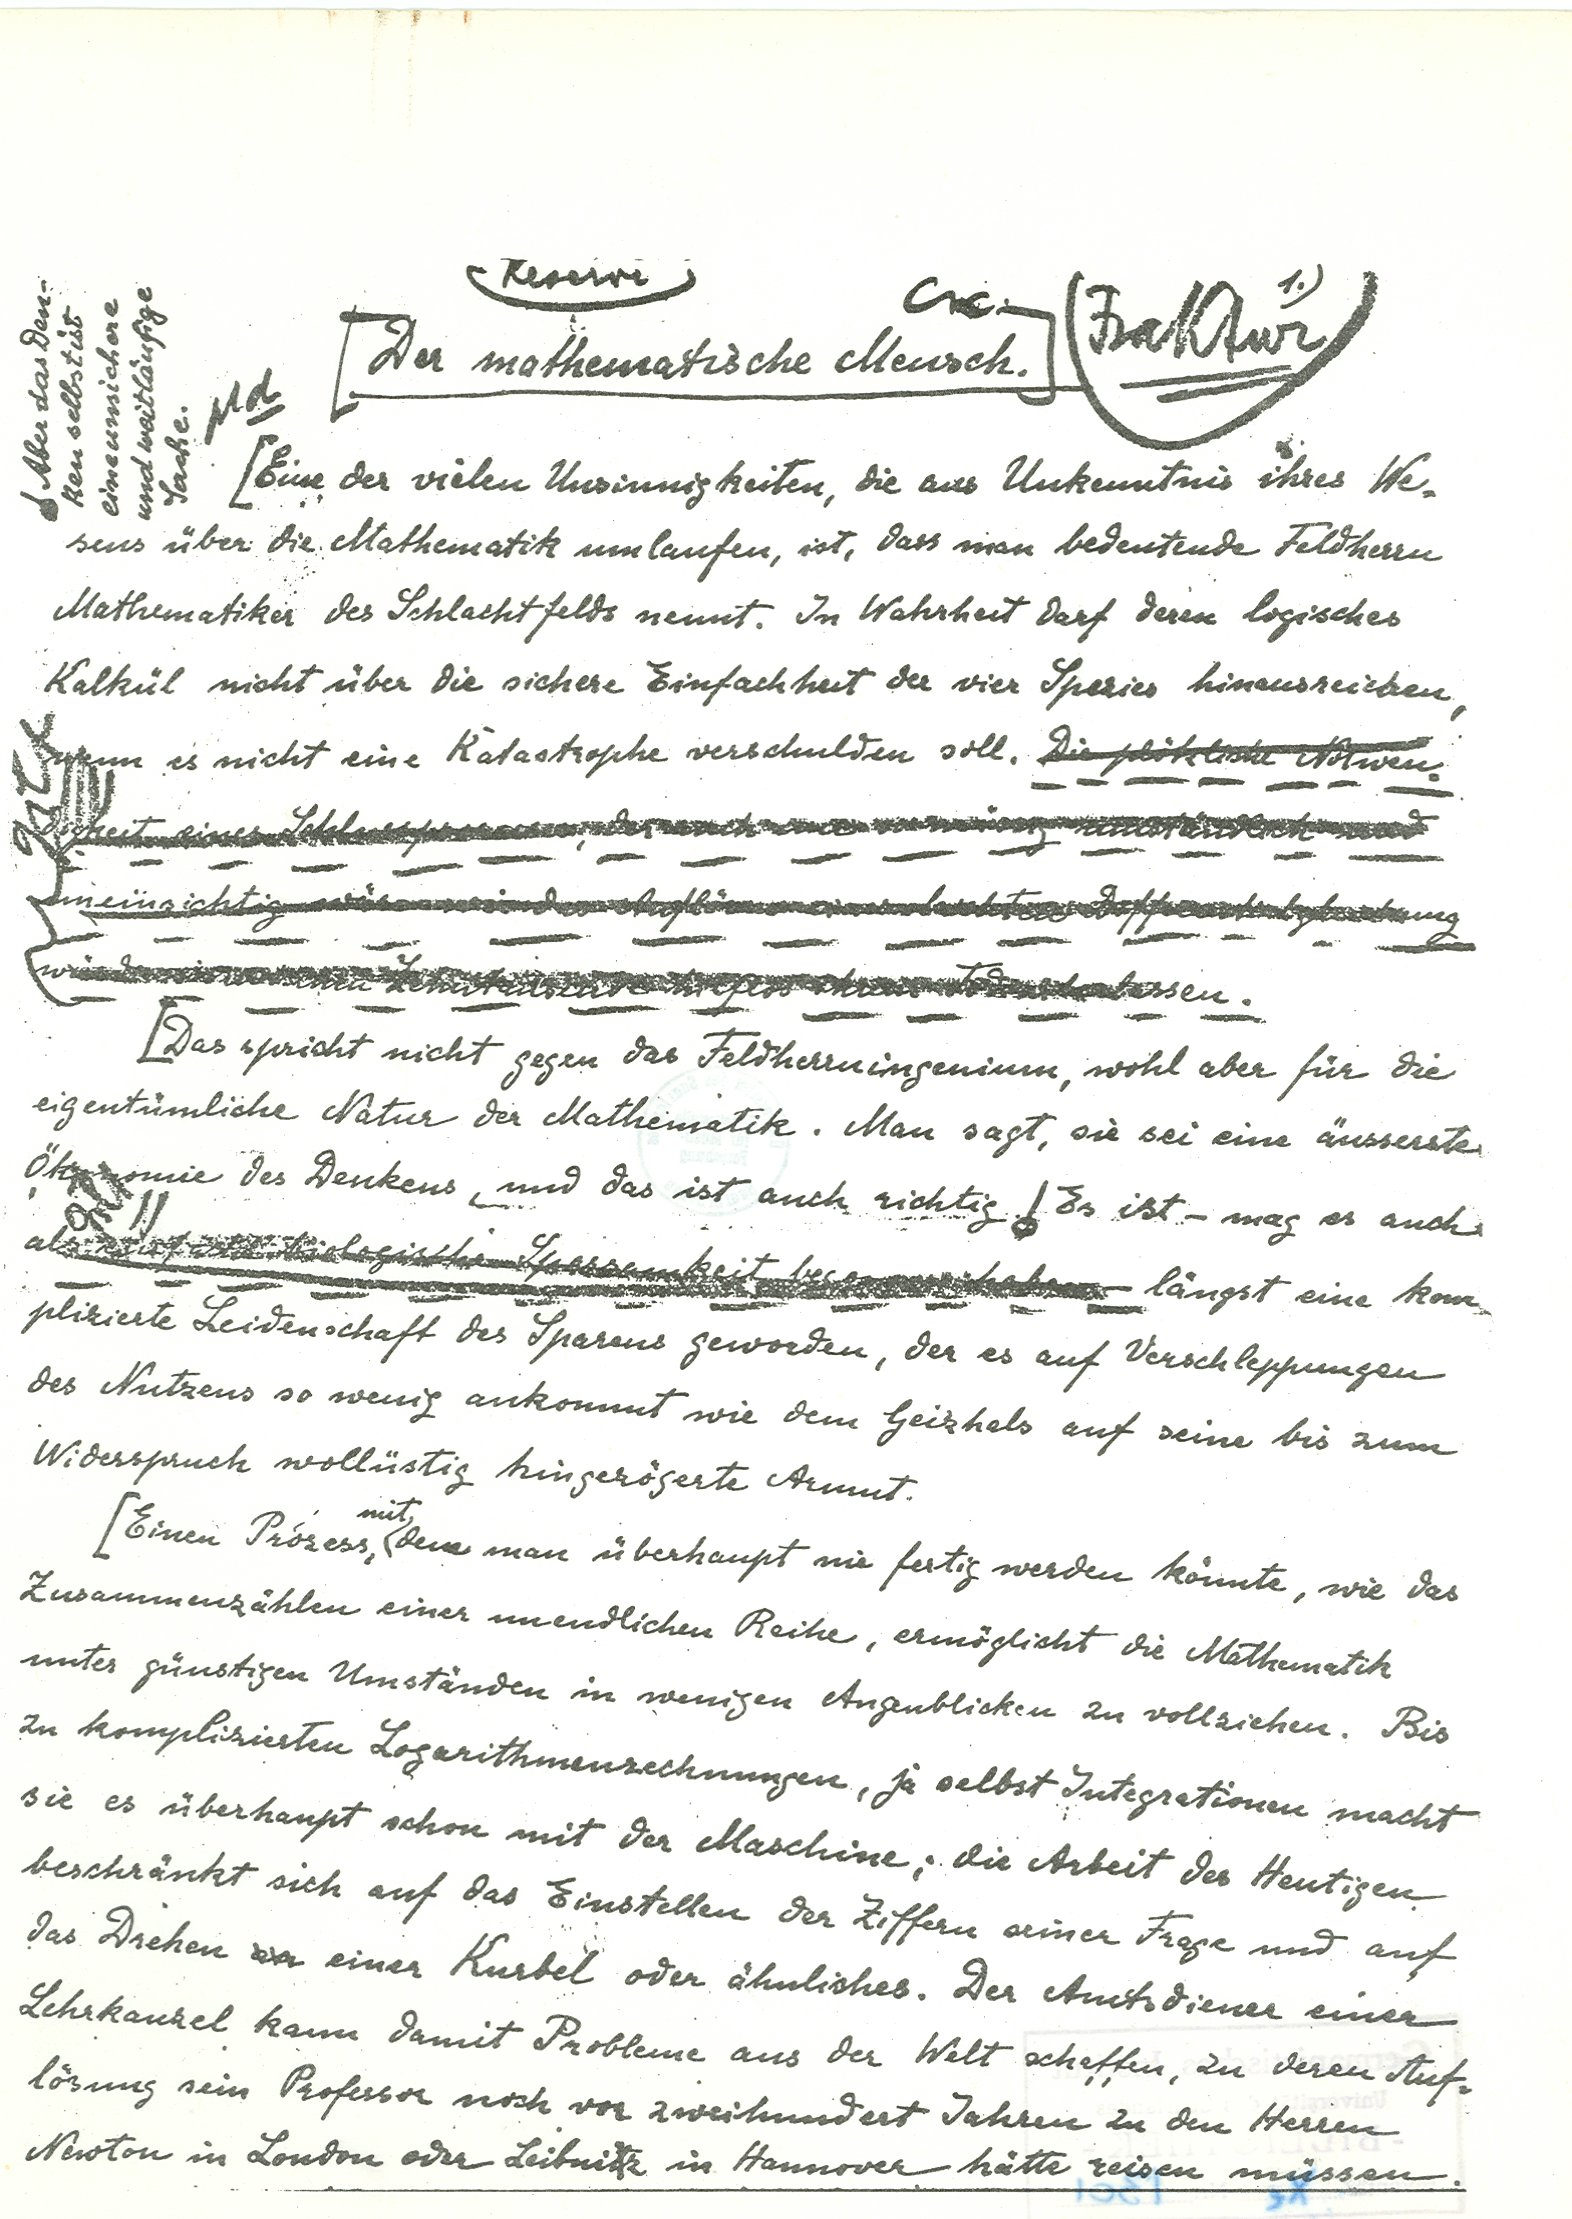 Reserve
1.)
Fraktur
Der mathematische Mensch.
Aber das Den-
ken selbst ist
eine unsichere
und weitläufige
Sache.
Eine der vielen Unsinnigkeiten, die aus Unkenntnis ihres We-
sens über die Mathematik umlaufen, ist, dass man bedeutende Feldherrn
Mathematiker des Schlachtfelds nennt. In Wahrheit darf deren logisches
Kalkül nicht über die sichere Einfachheit der vier Spezies hinausreichen,
wenn es nicht eine Katastrophe verschulden soll. Die plötzliche Notwen-
digkeit eines Schlussprozesses, der auch nur so mässig umständlich und
uneinsichtig wäre wie das Auflösen einer leichten Differentialgleichung
würde inzwischen Zehntausende hilflos ihrem Tod überlassen.
Das spricht nicht gegen das Feldherrningenium, wohl aber für die
eigentümliche Natur der Mathematik. Man sagt, sie sei eine äusserste
Ökonomie des Denkens, und das ist auch richtig. Es ist – mag es auch
als biologische Sparsamkeit begonnen haben – längst eine kom-
plizierte Leidenschaft des Sparens geworden, der es auf Verschleppungen
des Nutzens so wenig ankommt wie dem Geizhals auf seine bis zum
Widerspruch wollüstig hingezögerte Armut.
Einen Prozess, mit dem man überhaupt nie fertig werden könnte, wie das
Zusammenzählen einer unendlichen Reihe, ermöglicht die Mathematik
unter günstigen Umständen in wenigen Augenblicken zu vollziehen. Bis
zu komplizierten Logarithmenrechnungen, ja selbst Integrationen macht
sie es überhaupt schon mit der Maschine; die Arbeit des Heutigen
beschränkt sich auf das Einstellen der Ziffern seiner Frage und auf
das Drehen an einer Kurbel oder ähnliches. Der Amtsdiener einer
Lehrkanzel kann damit Probleme aus der Welt schaffen, zu deren Auf-
lösung sein Professor noch vor zweihundert Jahren zu den Herren
Newton in London oder Leibnitz in Hannover hätte reisen müssen.